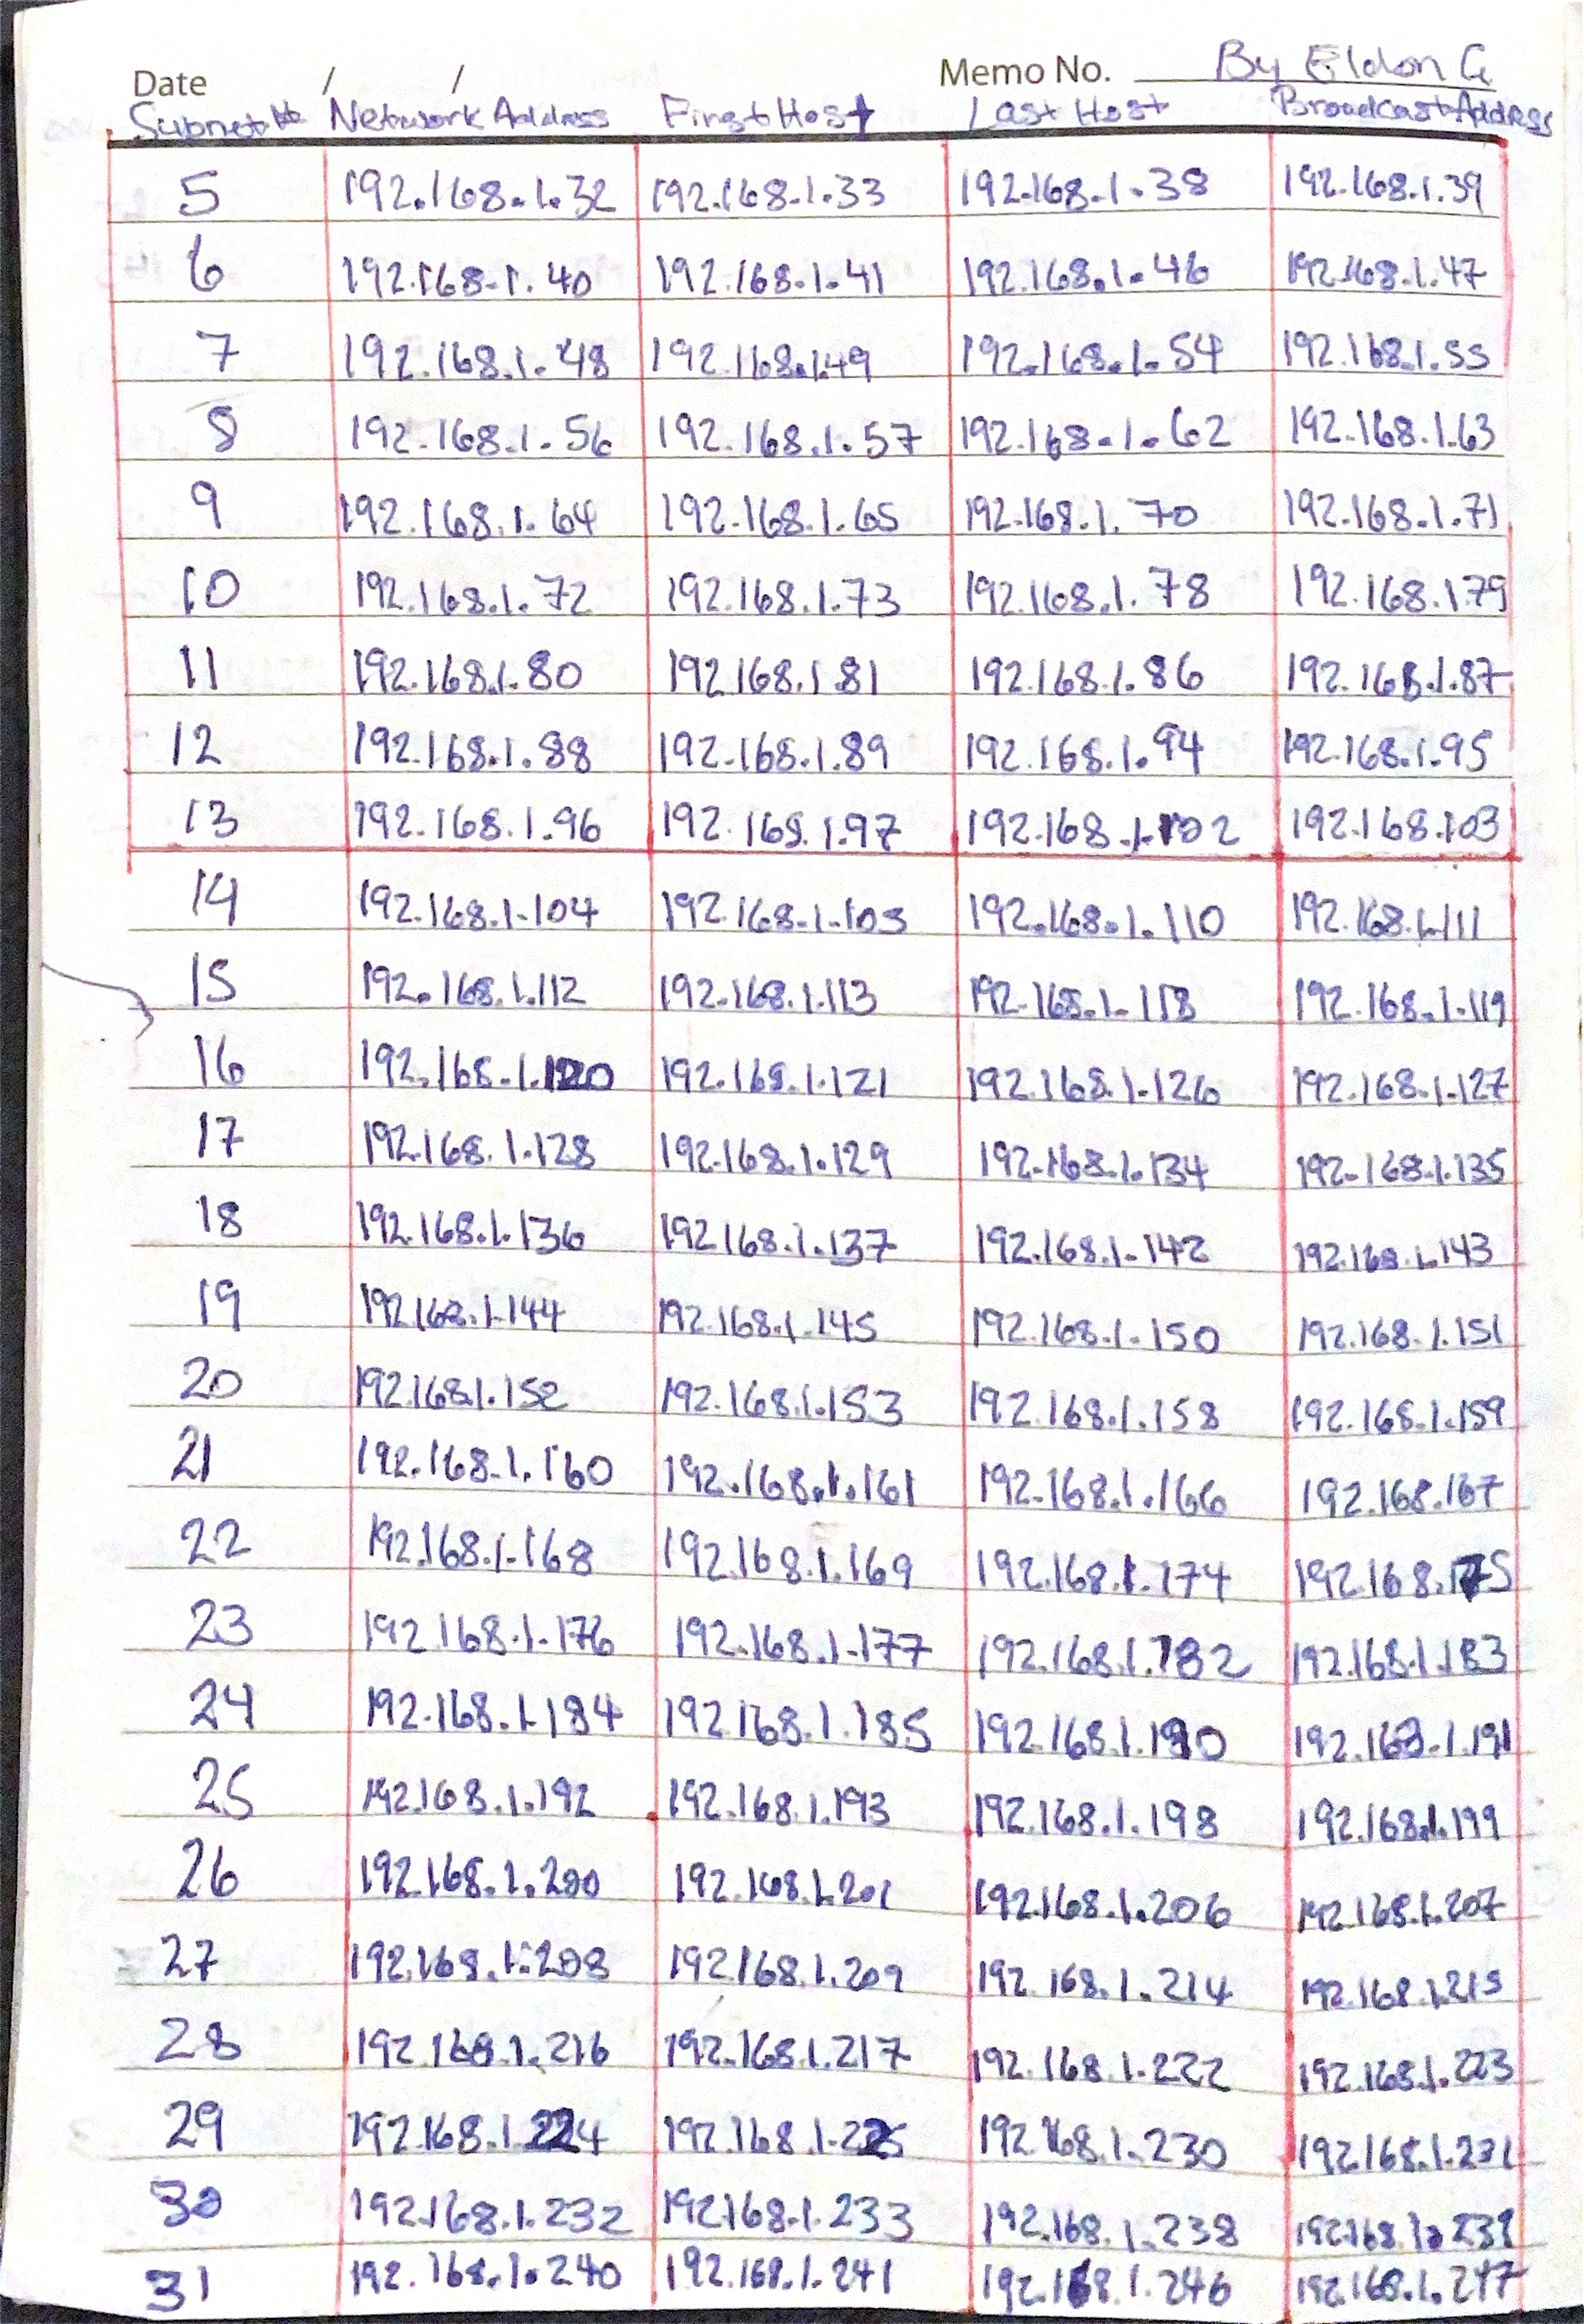 By Eldon G
Date / / Memo No.
Subnet # Network Address First Host Last Host Broadcast Address
5 192.168.1.32 192.168.1.33 192.168.1.38 192.168.1.39
6 192.168.1.40 192.168.1.41 192.168.1.46 192.168.1.47
7 192.168.1.48 192.168.1.49 192.168.1.54 192.168.1.55
8 192.168.1.56 192.168.1.57 192.168.1.62 192.168.1.63
9 192.168.1.64 192.168.1.65 192.168.1.70 192.168.1.71
10 192.168.1.72 192.168.1.73 192.168.1.78 192.168.179
11 192.168.1.80 192.168.1.81 192.168.1.86 192.168.1.87
12 192.168.1.88 192.168.1.89 192.168.1.94 192.168.1.95
13 192.168.1.96 192.168.1.97 192.168.1.102 192.168.103
14 192.168.1.104 192.168.1.105 192.168.1.110 192.168.1.111
15 192.168.1.112 192.168.1.113 192.168.1.118 192.168.1.119
16 192.168.1.120 192.168.1.121 192.168.1.126 192.168.1.127
17 192.168.1.128 192.168.1.129 192.168.1.134 192.168.1.135
18 192.168.1.136 192.168.1.137 192.168.1.142 192.168.1.143
19 192.168.1.144 192.168.1.145 192.168.1.150 192.168.1.151
20 192.168.1.152 192.168.1.153 192.168.1.158 192.168.1.159
21 192.168.1.160 192.168.1.161 192.168.1.166 192.168.167
22 192.168.1.168 192.168.1.169 192.168.1.174 192.168.175
23 192.168.1.176 192.168.1.177 192.168.1.182 192.168.1.183
24 192.168.1.184 192.168.1.185 192.168.1.190 192.168.1.191
25 192.168.1.192 192.168.1.193 192.168.1.198 192.168.1.199
26 192.168.1.200 192.168.1.201 192.168.1.206 192.168.1.207
27 192.168.1.208 192.168.1.209 192.168.1.214 192.168.1.215
28 192.168.1.216 192.168.1.217 192.168.1.222 192.168.1.223
29 192.168.1.224 192.168.1.225 192.168.1.230 192.168.1.231
30 192.168.1.232 192.168.1.233 192.168.1.238 192.168.1.239
31 192.168.1.240 192.168.1.241 192.168.1.246 192.168.1.247